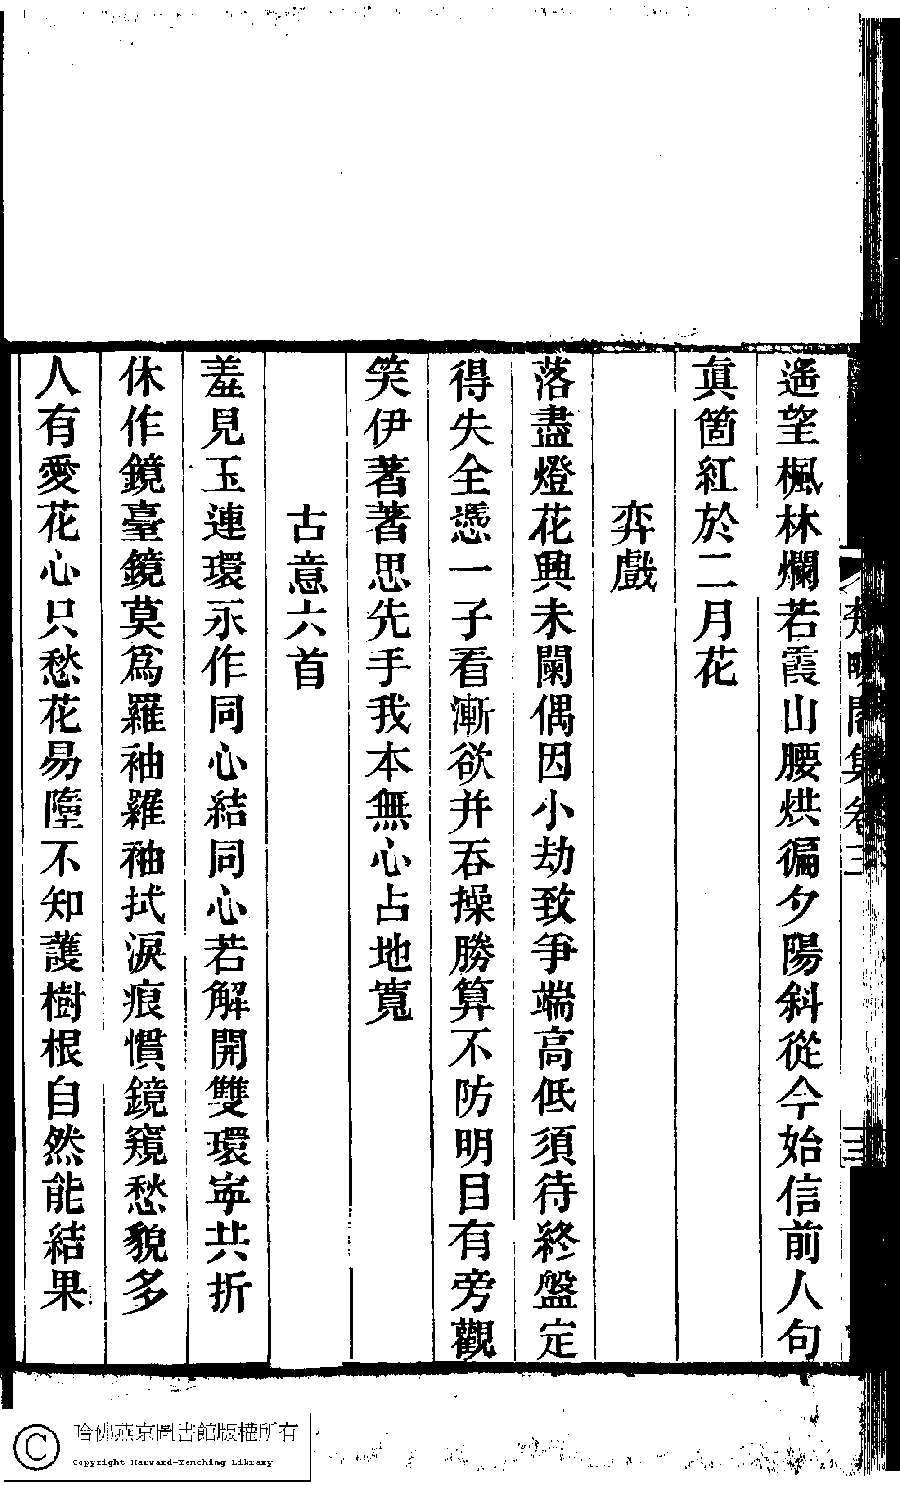 遙望楓林爛若霞山腰烘徧夕陽斜從今始信前人句
眞箇紅於二月花
弈戲
落盡燈花興未闌偶因小劫致爭端高低須待終盤定
得失全憑一子看漸欲并吞操勝算不防明目有旁觀
笑伊著著思先手我本無心占地寬
古意六首
羞見玉連環永作同心結同心若解開雙環寧共折
休作鏡臺鏡莫爲羅袖羅袖拭淚痕慣鏡窺愁貌多
人有愛花心只愁花易墮不知護樹根自然能結果
集卷三
三
哈佛燕京圖書館版權所有
Copyright Harvard-Yenching Library